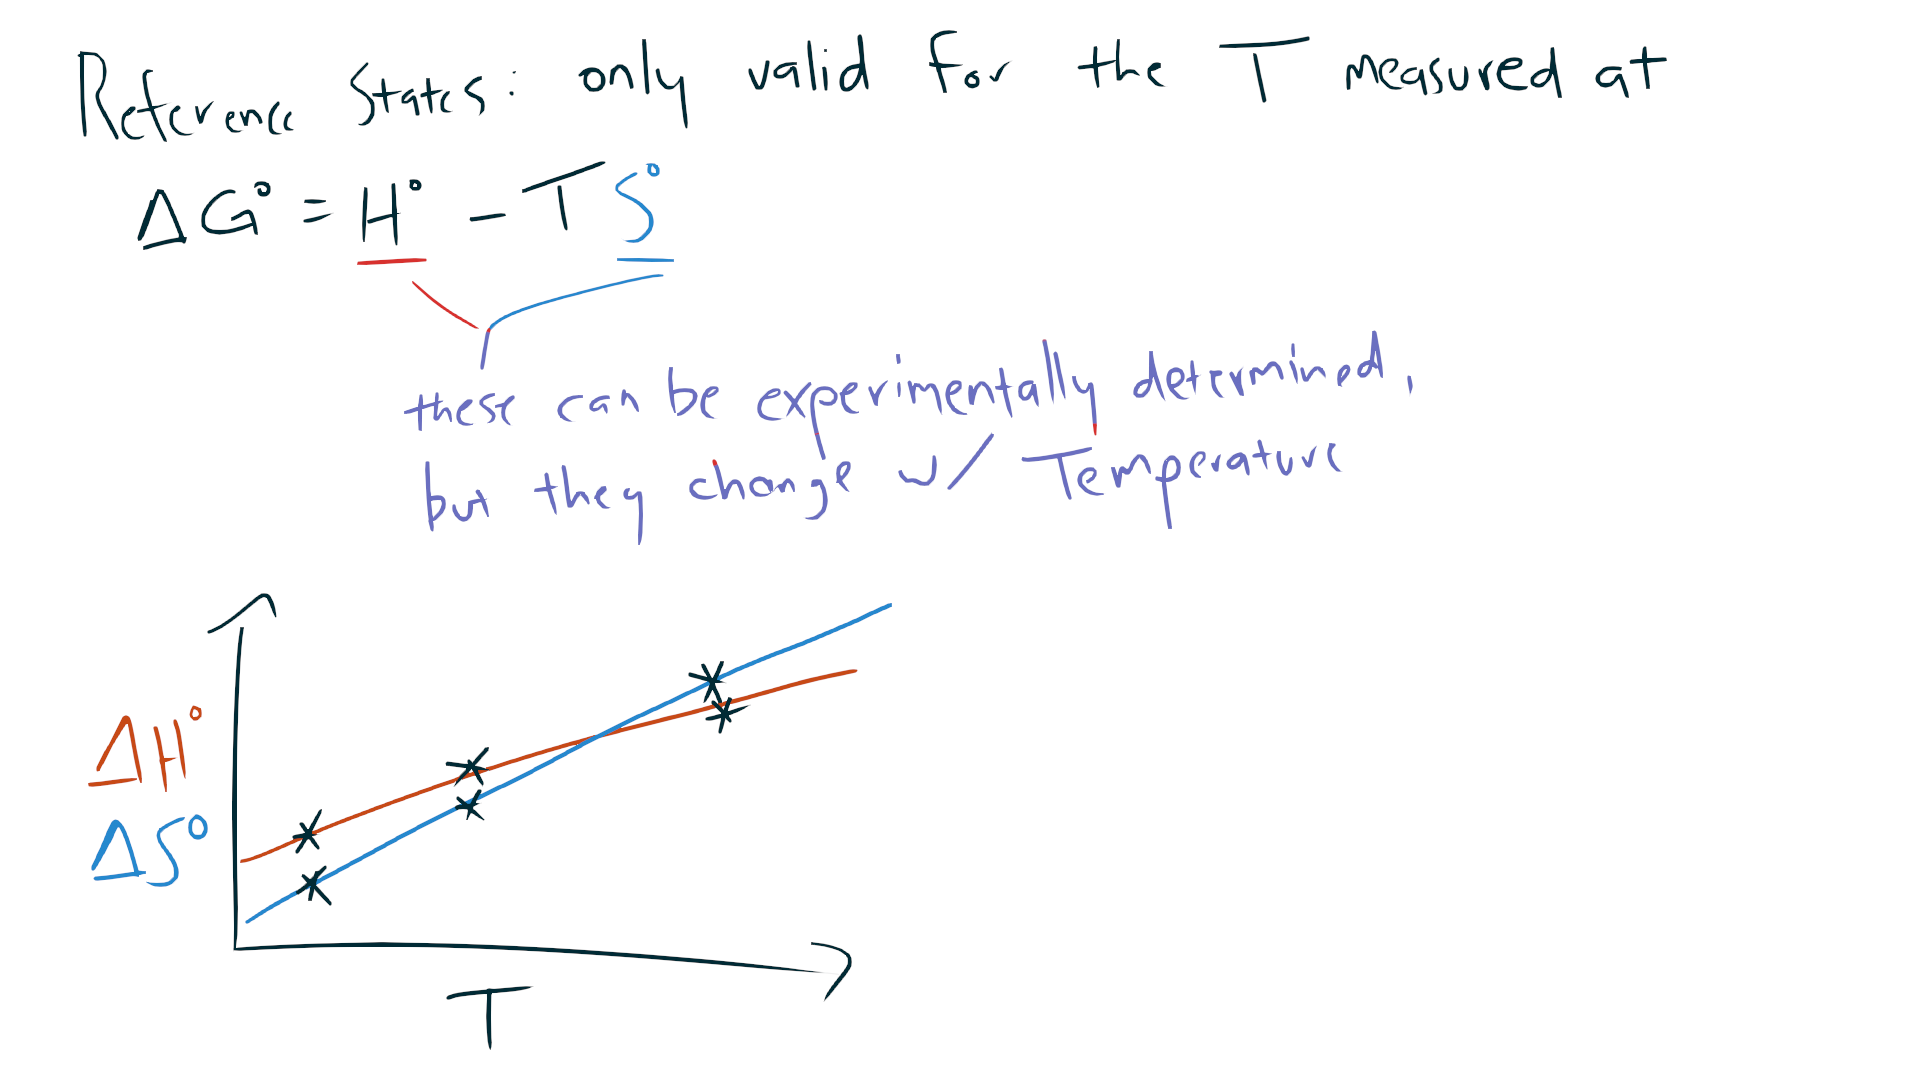 Reference States: only valid for the T measured at
ΔG° = H° - TS°
these can be experimentally determined,
but they change w/ Temperature
ΔH°
ΔS°
T